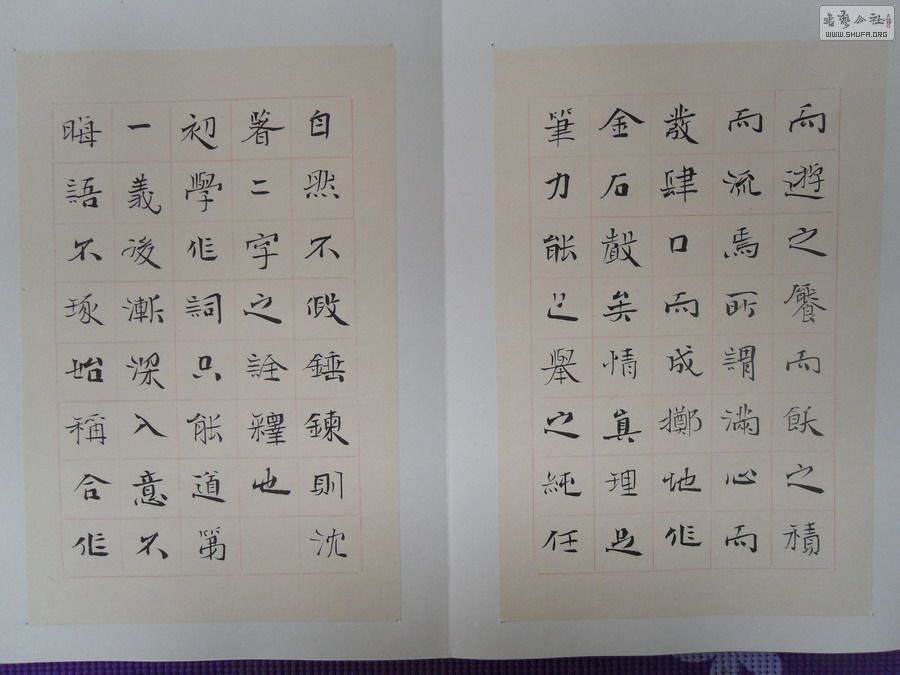 而遊之饜而飫之積
而流焉所謂滿心而
發肆口而成擲地作
金石聲矣情真理足
筆力能包舉之純任
自然不假錘鍊則沈
著二字之詮釋也
初學作詞只能道第
一義後漸深入意不
晦語不琢始稱合作
書藝公社
WWW.SHUFA.ORG